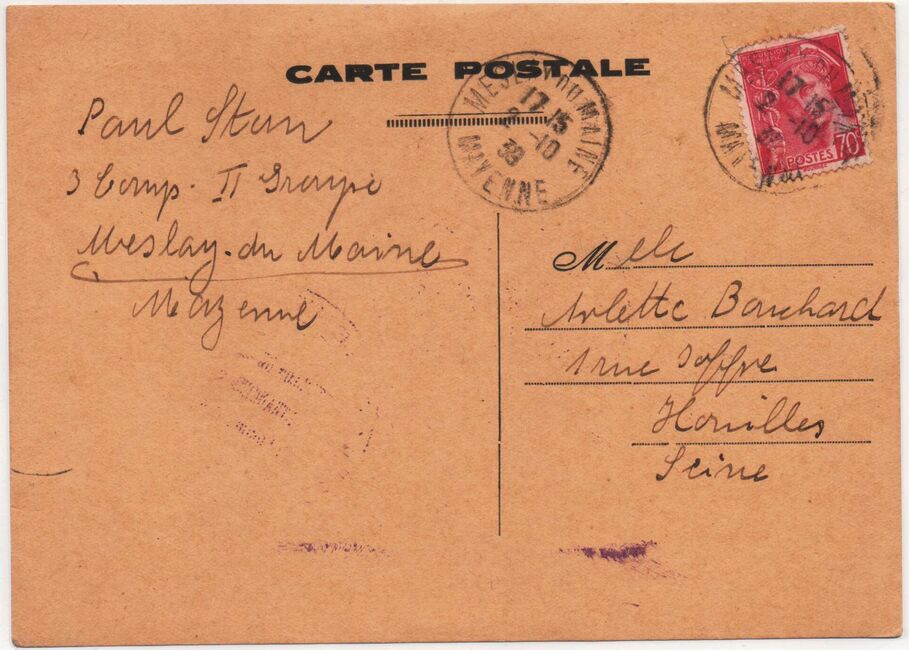 CARTE POSTALE
MESLAY DU MAINE
17 15
2 -10
39
MAYENNE
70
POSTES
Paul Stern
3 Comp. II Groupe
Meslay-du Maine
Mayenne
Melle
Arlette Bouchard
1 rue Joffre
Houilles
Seine